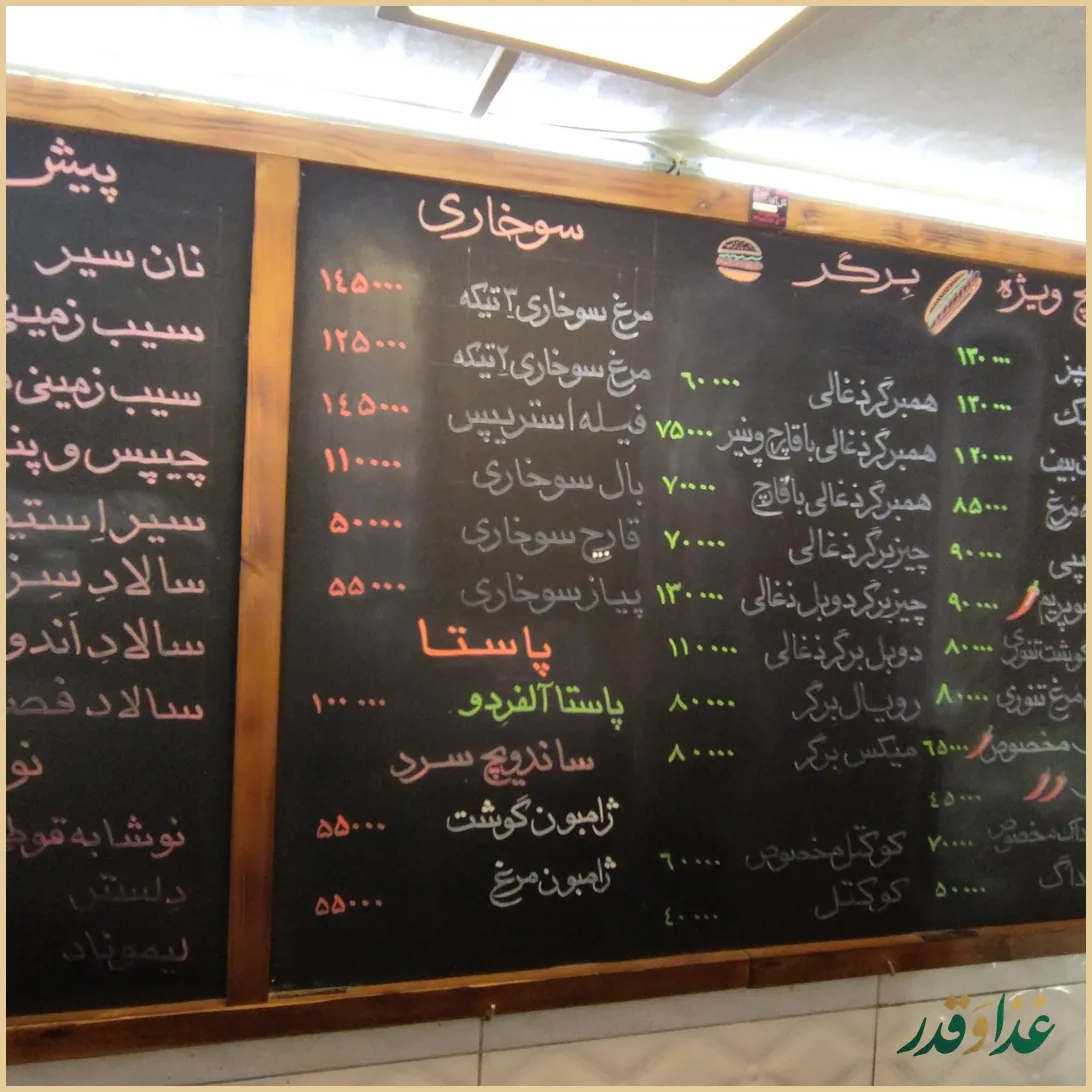 ویژه
۱۳۰۰۰۰
۱۲۰۰۰۰
۱۲۰۰۰۰
مرغ ۸۵۰۰۰
۹۰۰۰۰
۹۰۰۰۰
گوشت تنوری ۸۰۰۰۰
مرغ تنوری ۸۰۰۰۰
مخصوص ۶۵۰۰۰
۴۵۰۰۰
داگ مخصوص ۷۰۰۰۰
داگ ۵۰۰۰۰
برگر
همبرگر ذغالی ۶۰۰۰۰
همبرگر ذغالی با قارچ و پنیر ۷۵۰۰۰
همبرگر ذغالی با قارچ ۷۰۰۰۰
چیزبرگر ذغالی ۷۰۰۰۰
چیزبرگر دوبل ذغالی ۱۳۰۰۰۰
دوبل برگر ذغالی ۱۱۰۰۰۰
رویال برگر ۸۰۰۰۰
میکس برگر ۸۰۰۰۰
کوکتل مخصوص ۶۰۰۰۰
کوکتل ۴۰۰۰۰
سوخاری
مرغ سوخاری ۳ تیکه ۱۴۵۰۰۰
مرغ سوخاری ۲ تیکه ۱۲۵۰۰۰
فیله استریپس ۱۴۵۰۰۰
بال سوخاری ۱۱۰۰۰۰
قارچ سوخاری ۵۰۰۰۰
پیاز سوخاری ۵۵۰۰۰
پاستا
پاستا آلفردو ۱۰۰۰۰۰
ساندویچ سرد
ژامبون گوشت ۵۵۰۰۰
ژامبون مرغ ۵۵۰۰۰
پیش
نان سیر
سیب زمینی
سیب زمینی
چیپس و
سیر
سالاد
سالاد
سالاد
نوشابه قوطی
دلستر
لیموناد
غذا و قدر